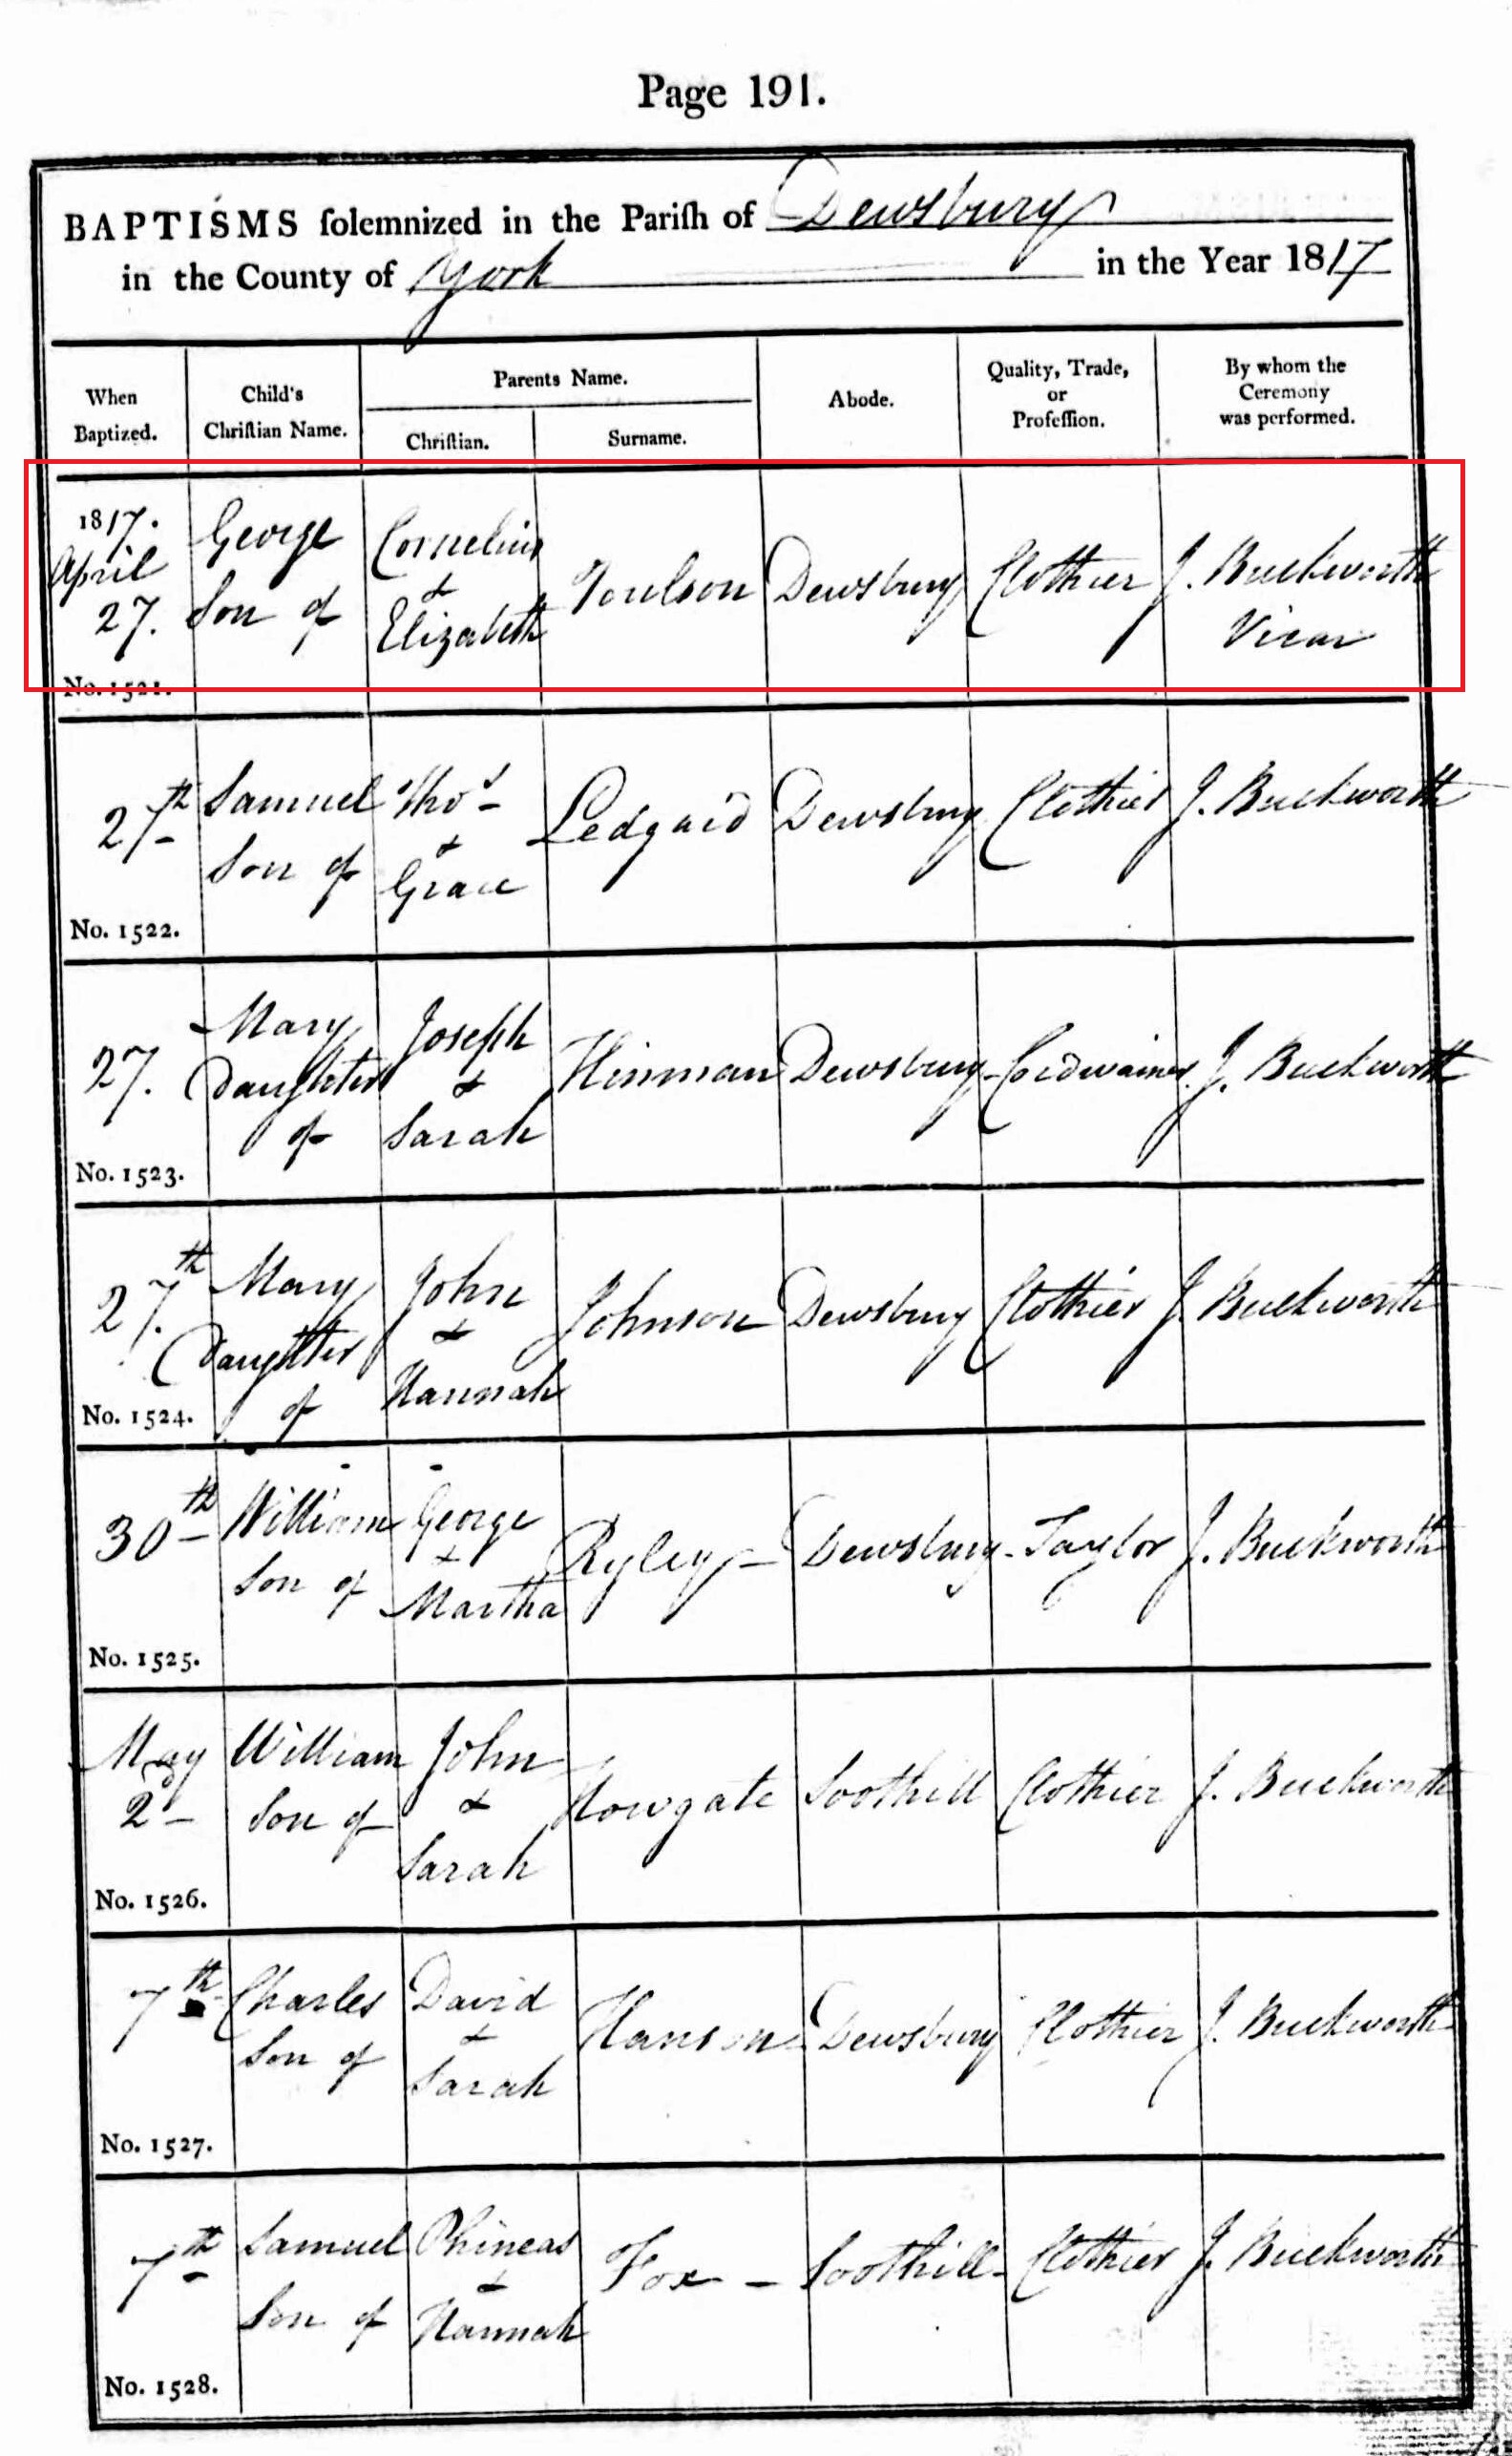 Page 191.
BAPTISMS ſolemnized in the Pariſh of Dewsbury
in the County of York in the Year 1817
When Baptized.
Child's Chriſtian Name.
Parents Name.
Chriſtian.
Surname.
Abode.
Quality, Trade, or Profeſſion.
By whom the Ceremony was performed.
1817. April 27. George Son of Cornelius & Elizabeth Poulson Dewsbury Clothier J. Buckworth Vicar
No. 1521.
27th Samuel Son of Thos & Grace Ledgard Dewsbury Clothier J. Buckworth
No. 1522.
27. Mary Daughter of Joseph & Sarah Hinman Dewsbury Cordwainer J. Buckworth
No. 1523.
27th Mary Daughter of John & Hannah Johnson Dewsbury Clothier J. Buckworth
No. 1524.
30th William Son of George & Martha Ryley Dewsbury Taylor J. Buckworth
No. 1525.
May 2d William Son of John & Sarah Howgate Soothill Clothier J. Buckworth
No. 1526.
7th Charles Son of David & Sarah Hanson Dewsbury Clothier J. Buckworth
No. 1527.
7th Samuel Son of Phineas & Hannah Fox Soothill Clothier J. Buckworth
No. 1528.